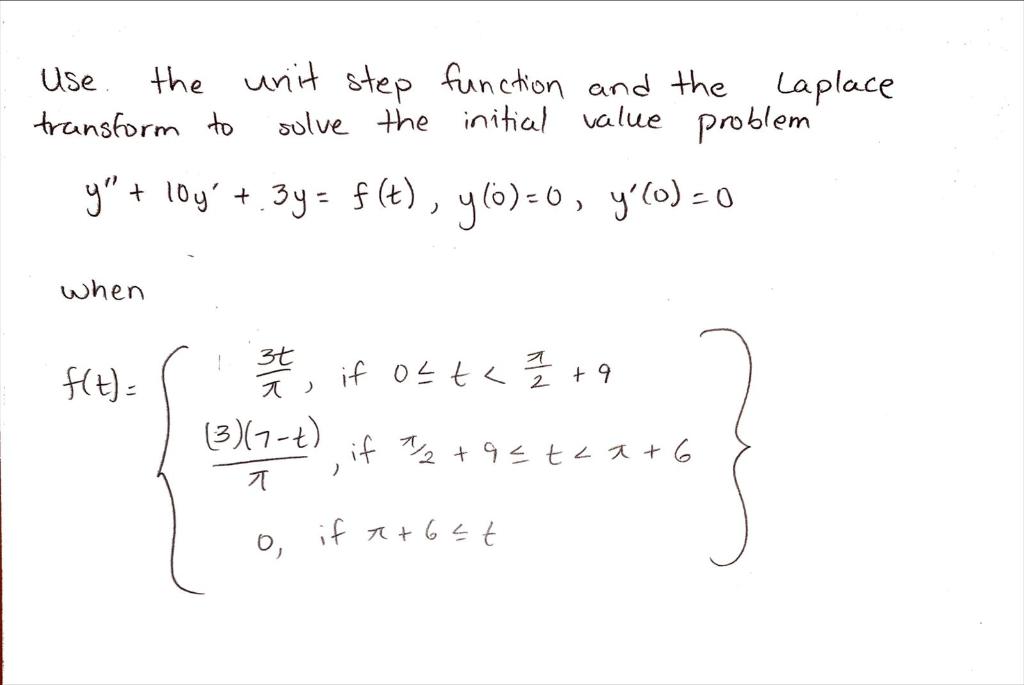 Use the unit step function and the Laplace
transform to solve the initial value problem
y" + 10y' + 3y = f(t), y(0)=0, y'(0)=0
when
f(t)= { 3t/π, if 0 ≤ t < π/2 + 9
(3)(7-t)/π, if π/2 + 9 ≤ t < π + 6
0, if π + 6 ≤ t }